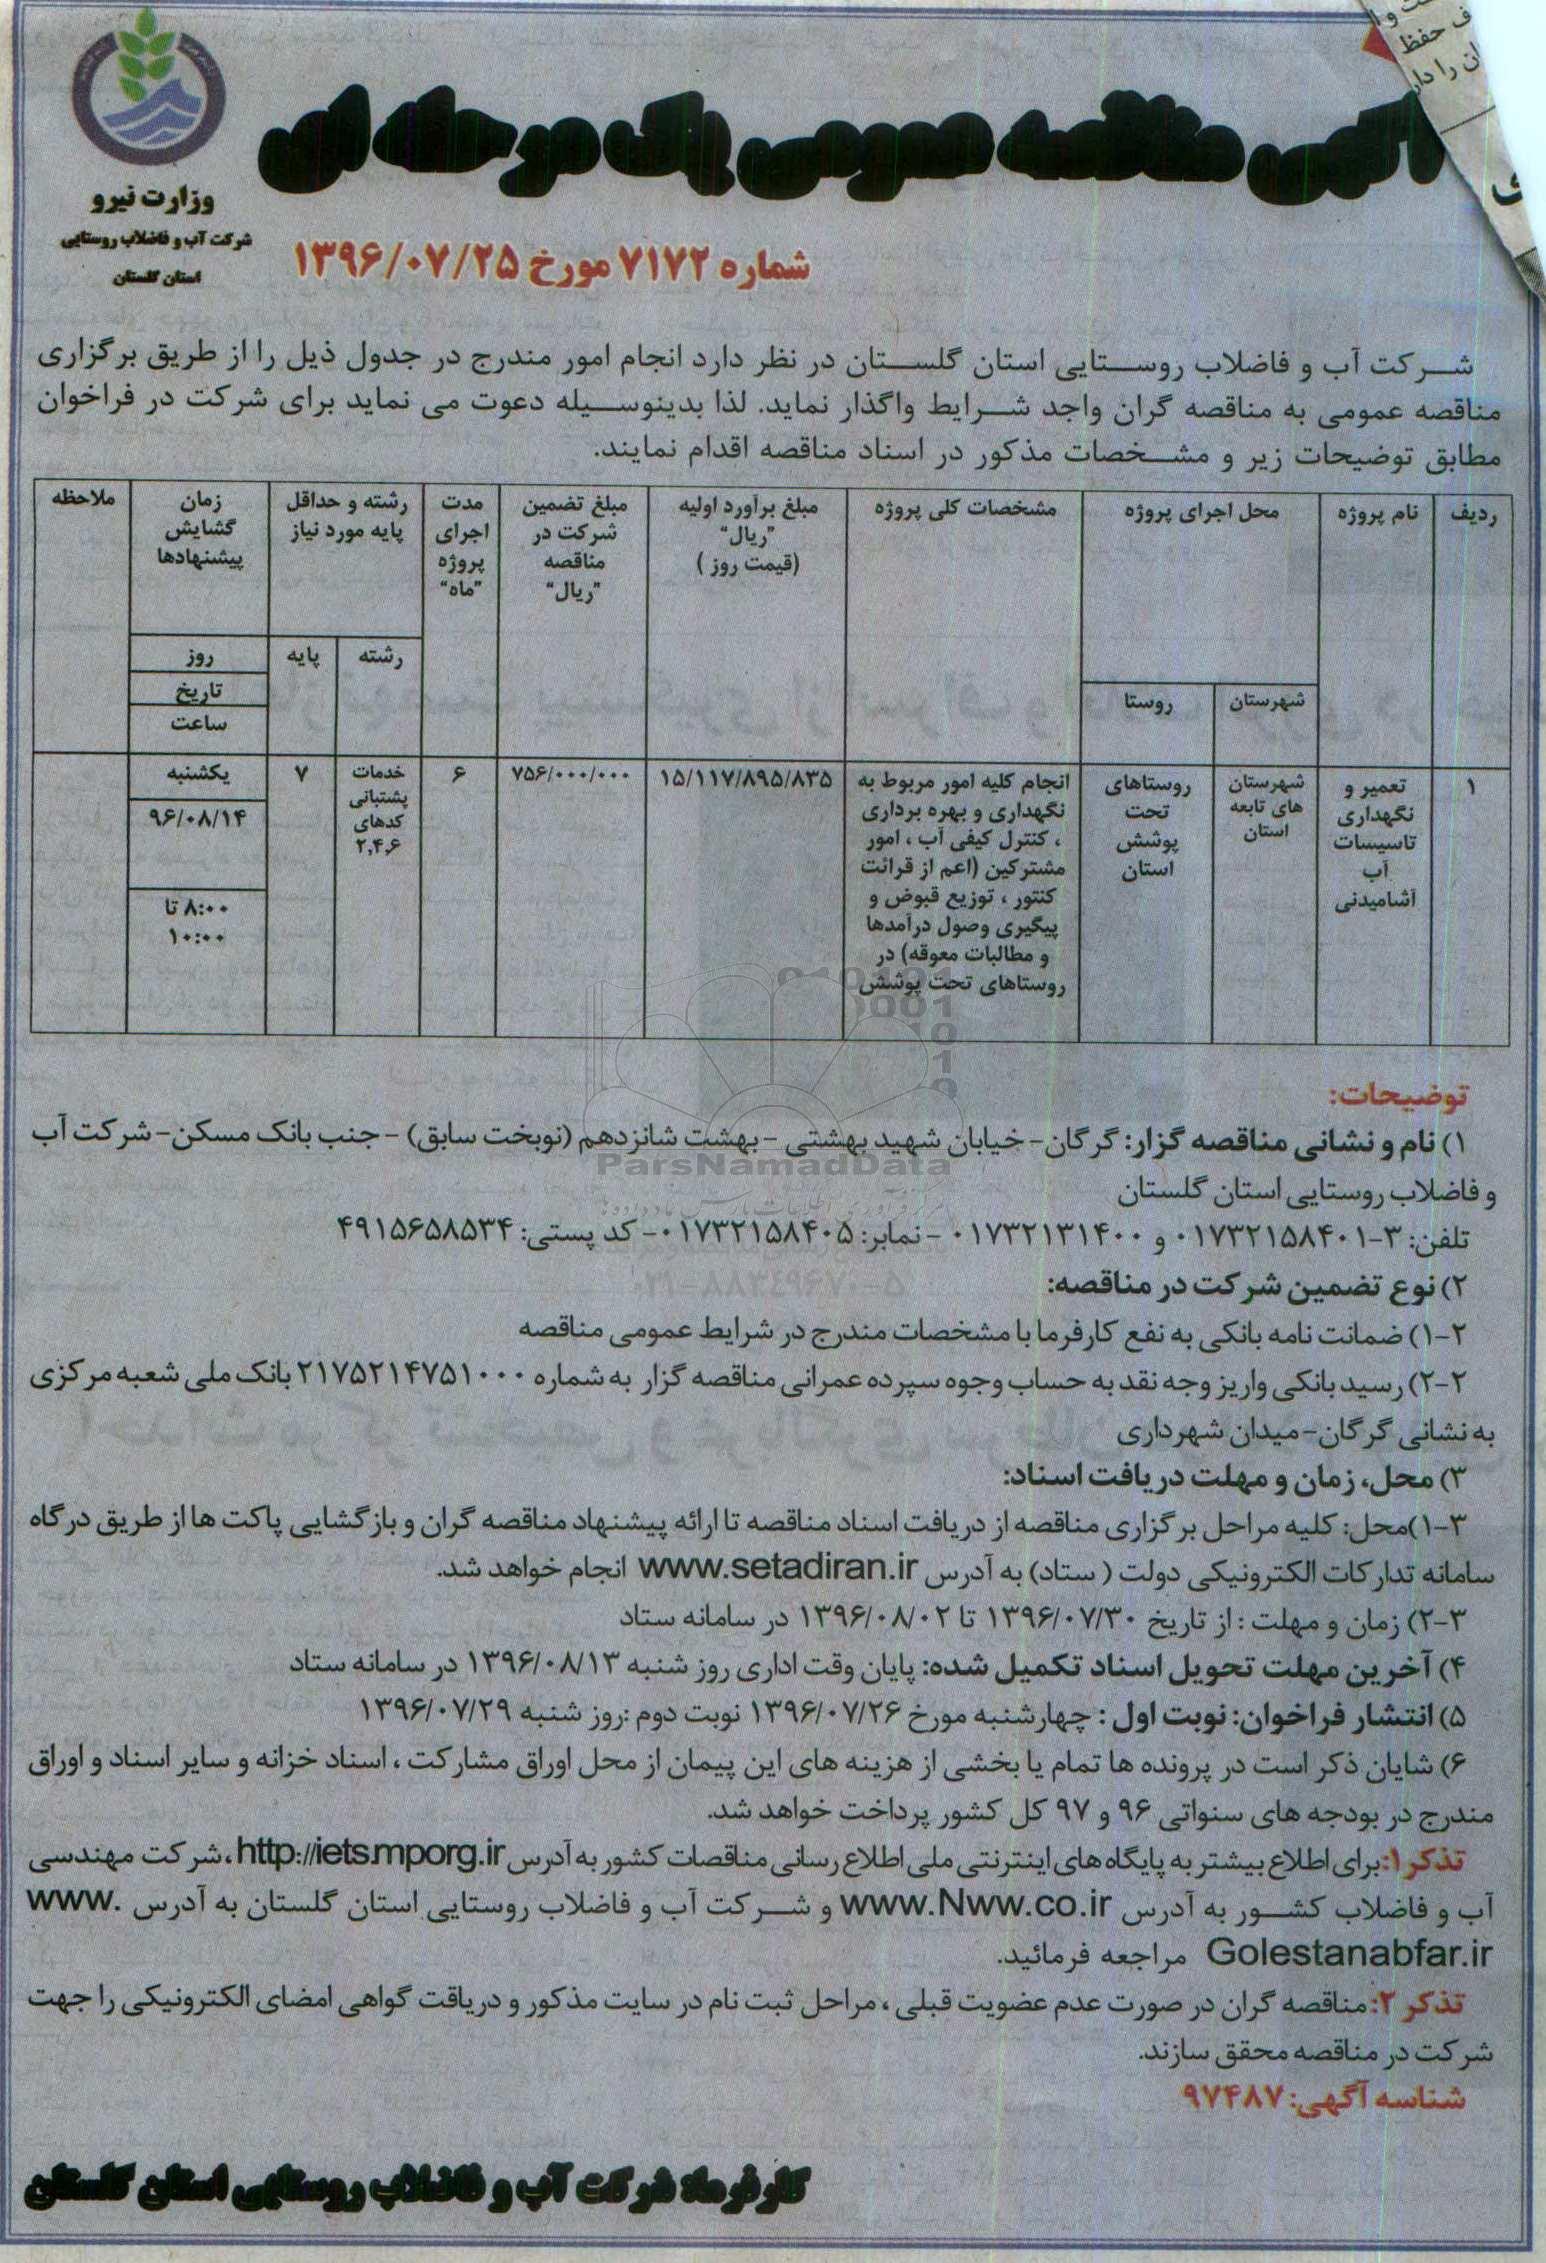 آگهی مناقصه عمومی یک مرحله ای
وزارت نیرو
شرکت آب و فاضلاب روستایی
استان گلستان
شماره ۷۱۷۲ مورخ ۱۳۹۶/۰۷/۲۵
شرکت آب و فاضلاب روستایی استان گلستان در نظر دارد انجام امور مندرج در جدول ذیل را از طریق برگزاری
مناقصه عمومی به مناقصه گران واجد شرایط واگذار نماید. لذا بدینوسیله دعوت می نماید برای شرکت در فراخوان
مطابق توضیحات زیر و مشخصات مذکور در اسناد مناقصه اقدام نمایند.
ردیف
نام پروژه
محل اجرای پروژه
شهرستان
روستا
مشخصات کلی پروژه
مبلغ برآورد اولیه
"ریال"
(قیمت روز )
مبلغ تضمین
شرکت در
مناقصه
"ریال"
مدت
اجرای
پروژه
"ماه"
رشته و حداقل
پایه مورد نیاز
رشته
پایه
زمان
گشایش
پیشنهادها
روز
تاریخ
ساعت
ملاحظه
۱
تعمیر و
نگهداری
تاسیسات
آب
آشامیدنی
شهرستان
های تابعه
استان
روستاهای
تحت
پوشش
استان
انجام کلیه امور مربوط به
نگهداری و بهره برداری
، کنترل کیفی آب ، امور
مشترکین (اعم از قرائت
کنتور ، توزیع قبوض و
پیگیری وصول درآمدها
و مطالبات معوقه) در
روستاهای تحت پوشش
۱۵/۱۱۷/۸۹۵/۸۳۵
۷۵۶/۰۰۰/۰۰۰
۶
خدمات
پشتبانی
کدهای
۲,۴,۶
۷
یکشنبه
۹۶/۰۸/۱۴
۸:۰۰ تا
۱۰:۰۰
توضیحات:
۱) نام و نشانی مناقصه گزار: گرگان- خیابان شهید بهشتی - بهشت شانزدهم (نوبخت سابق) - جنب بانک مسکن- شرکت آب
و فاضلاب روستایی استان گلستان
تلفن: ۳-۰۱۷۳۲۱۵۸۴۰۱ و ۰۱۷۳۲۱۳۱۴۰۰ - نمابر: ۰۱۷۳۲۱۵۸۴۰۵- کد پستی: ۴۹۱۵۶۵۸۵۳۴
۲) نوع تضمین شرکت در مناقصه:
۱-۲) ضمانت نامه بانکی به نفع کارفرما با مشخصات مندرج در شرایط عمومی مناقصه
۲-۲) رسید بانکی واریز وجه نقد به حساب وجوه سپرده عمرانی مناقصه گزار به شماره ۲۱۷۵۲۱۴۷۵۱۰۰۰ بانک ملی شعبه مرکزی
به نشانی گرگان- میدان شهرداری
۳) محل، زمان و مهلت دریافت اسناد:
۱-۳)محل: کلیه مراحل برگزاری مناقصه از دریافت اسناد مناقصه تا ارائه پیشنهاد مناقصه گران و بازگشایی پاکت ها از طریق درگاه
سامانه تدارکات الکترونیکی دولت ( ستاد) به آدرس www.setadiran.ir انجام خواهد شد.
۲-۳) زمان و مهلت : از تاریخ ۱۳۹۶/۰۷/۳۰ تا ۱۳۹۶/۰۸/۰۲ در سامانه ستاد
۴) آخرین مهلت تحویل اسناد تکمیل شده: پایان وقت اداری روز شنبه ۱۳۹۶/۰۸/۱۳ در سامانه ستاد
۵) انتشار فراخوان: نوبت اول : چهارشنبه مورخ ۱۳۹۶/۰۷/۲۶ نوبت دوم :روز شنبه ۱۳۹۶/۰۷/۲۹
۶) شایان ذکر است در پرونده ها تمام یا بخشی از هزینه های این پیمان از محل اوراق مشارکت ، اسناد خزانه و سایر اسناد و اوراق
مندرج در بودجه های سنواتی ۹۶ و ۹۷ کل کشور پرداخت خواهد شد.
تذکر۱: برای اطلاع بیشتر به پایگاه های اینترنتی ملی اطلاع رسانی مناقصات کشور به آدرس http://iets.mporg.ir، شرکت مهندسی
آب و فاضلاب کشور به آدرس www.Nww.co.ir و شرکت آب و فاضلاب روستایی استان گلستان به آدرس www.
Golestanabfar.ir مراجعه فرمائید.
تذکر ۲: مناقصه گران در صورت عدم عضویت قبلی ، مراحل ثبت نام در سایت مذکور و دریاقت گواهی امضای الکترونیکی را جهت
شرکت در مناقصه محقق سازند.
شناسه آگهی: ۹۷۴۸۷
کارفرما: شرکت آب و فاضلاب روستایی استان گلستان
ParsNamadData